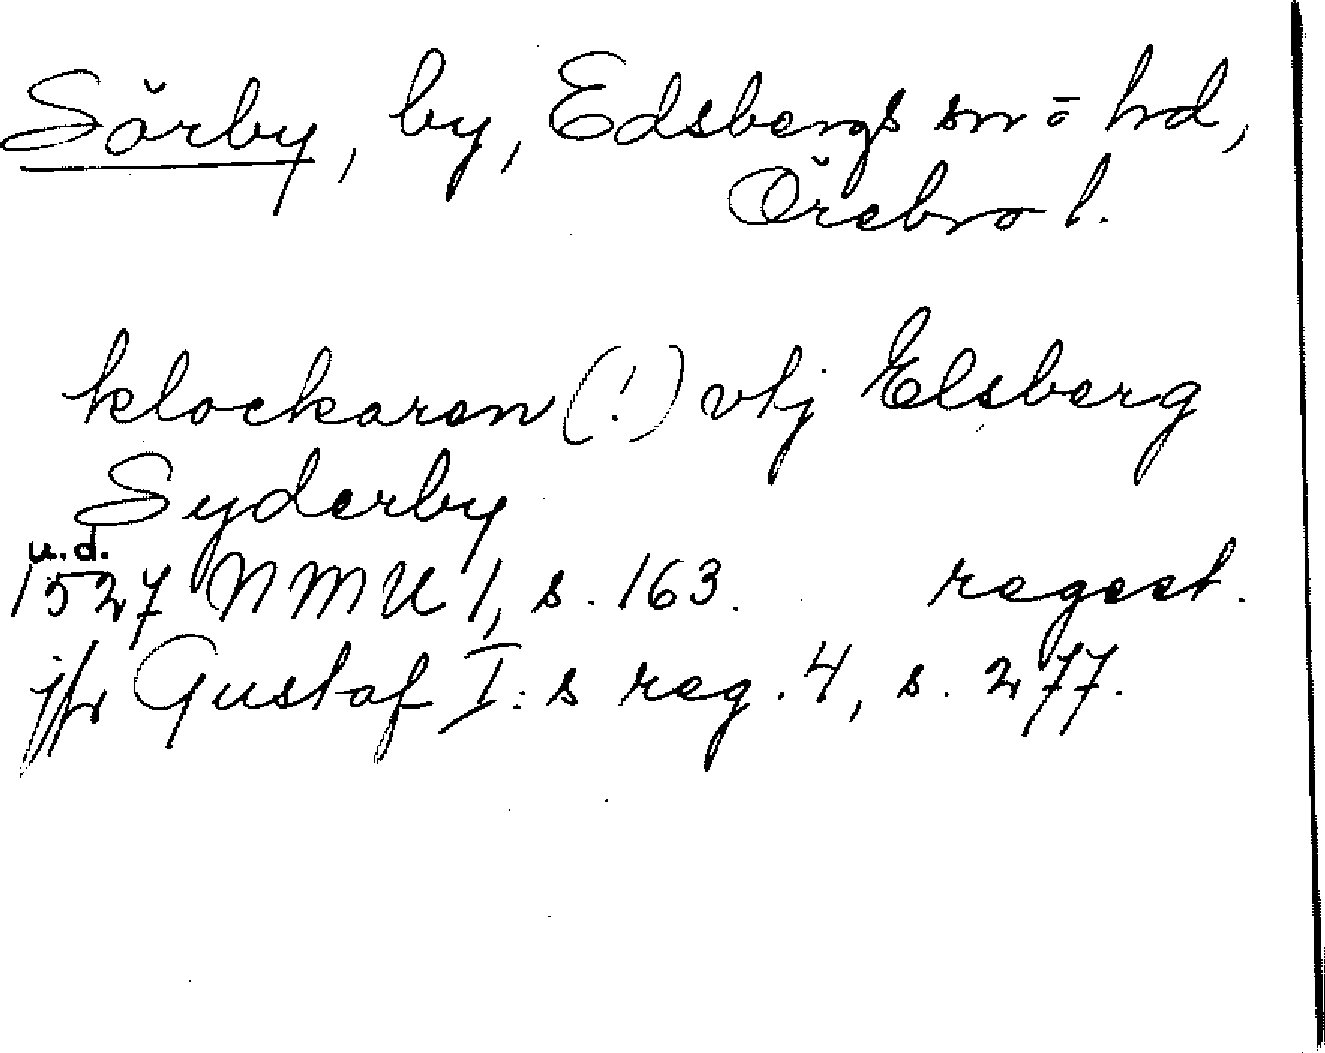 Sörby, by, Edsbergs sn ō hd,
Örebro l.
klockaren (!) vtj Elsberg
Syderby
u.d.
1527 NMU 1, s. 163. regest.
jfr Gustaf I:s reg. 4, s. 277.